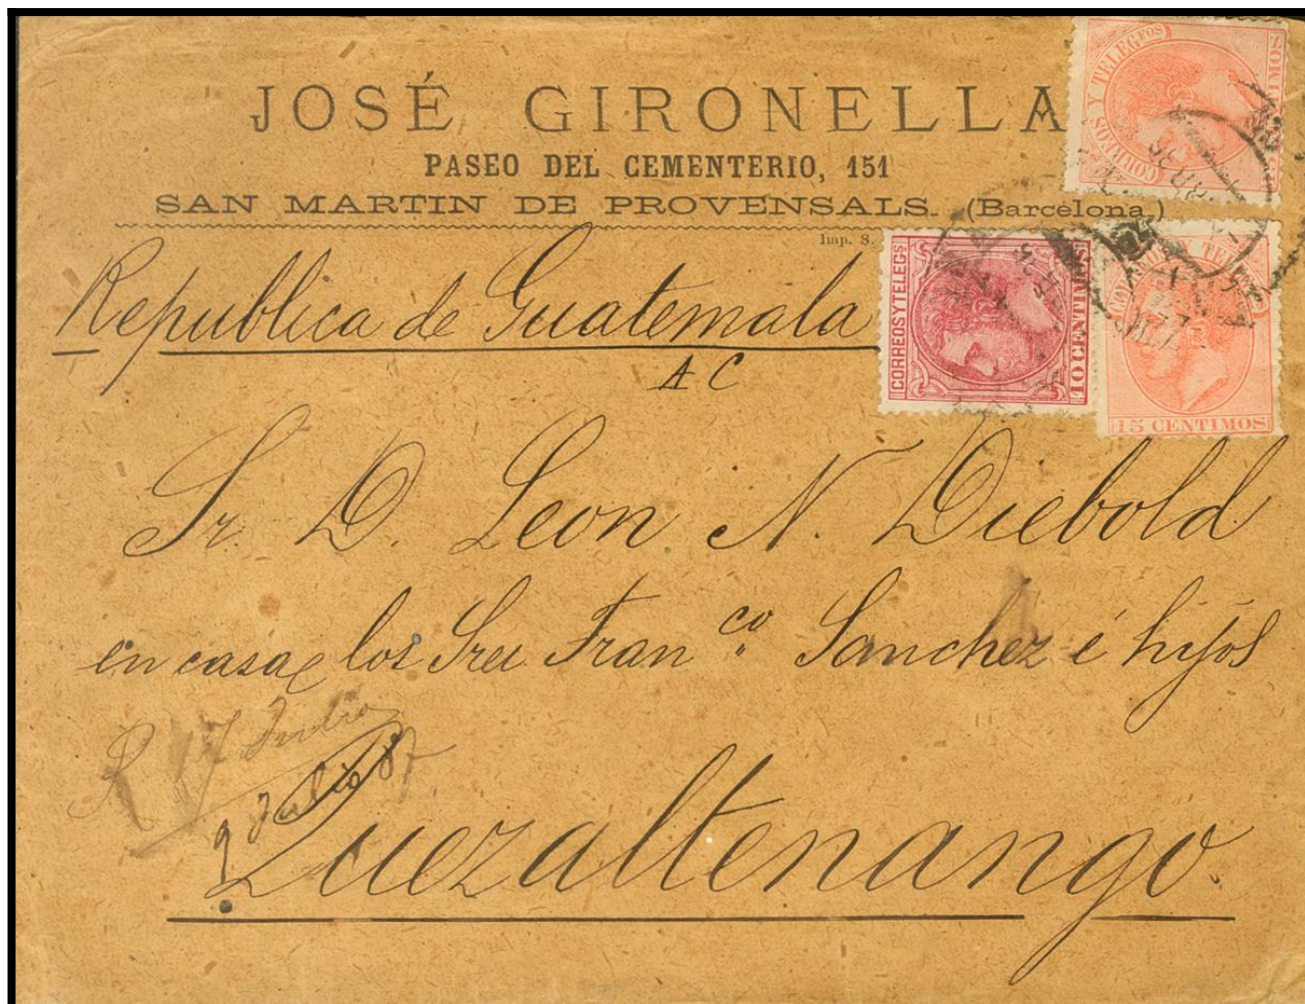 JOSÉ GIRONELLA
PASEO DEL CEMENTERIO, 151
SAN MARTIN DE PROVENSALS. (Barcelona.)
Imp. S.
CORREOS Y TELEGFOS
CENTIMOS
CORREOS Y TELEGS
10 CENTIMS
CORREOS Y TELEG
15 CENTIMOS
Republica de Guatemala
A C
Sr. D. Leon N. Diebold
en casa los Sres Franco Sanchez é hijos
R 17 Julio
9 Julio 87
Quezaltenango.